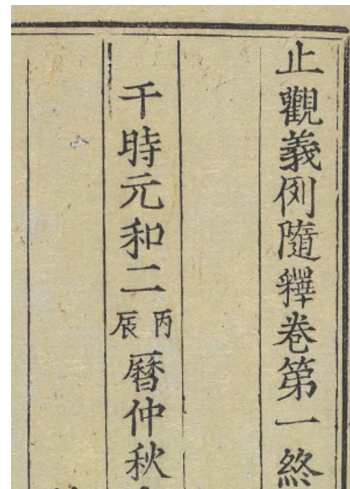 止觀義例隨釋卷第一終
于時元和二丙辰曆仲秋